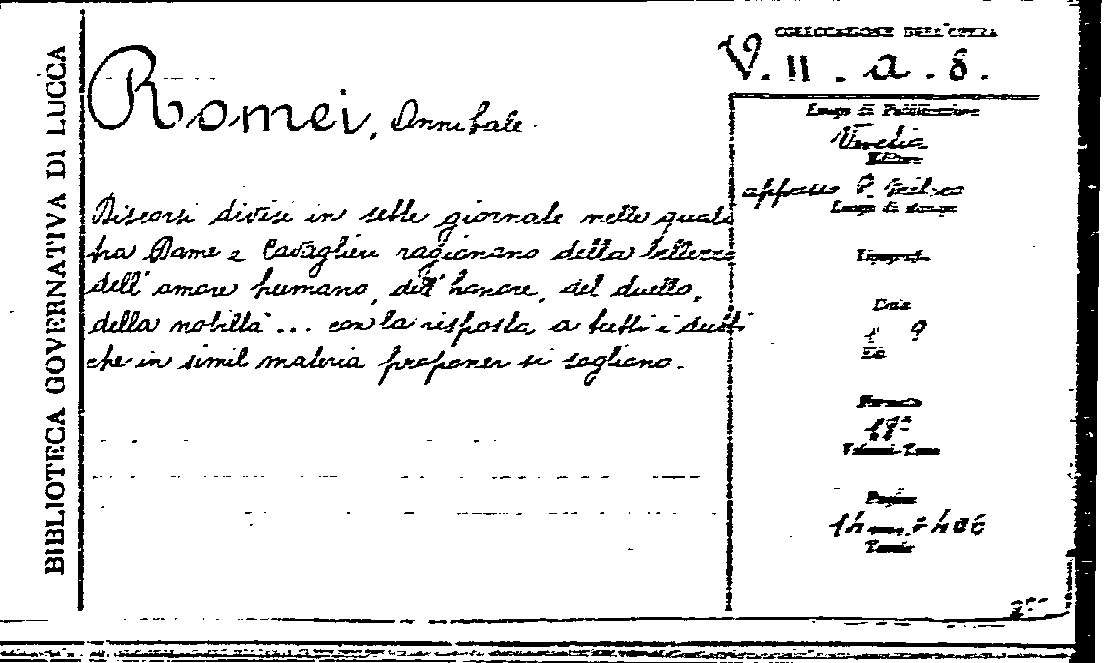 BIBLIOTECA GOVERNATIVA DI LUCCA
COLLOCAZIONE DELL'OPERA
V. II. a. 8.
Romei, Annibale.
Discorsi divisi in sette giornate nelle quali
tra Dame e Cavaglieri ragionano della bellezza
dell' amore humano, dell' honore, del duello,
della nobiltà ... con la risposta a tutti i dubbi
che in simil materia proponer si sogliono.
Luogo di Pubblicazione
Venetia
Editore
appresso P.
Luogo di stampa
Tipografo
Data
Formato
Pagine